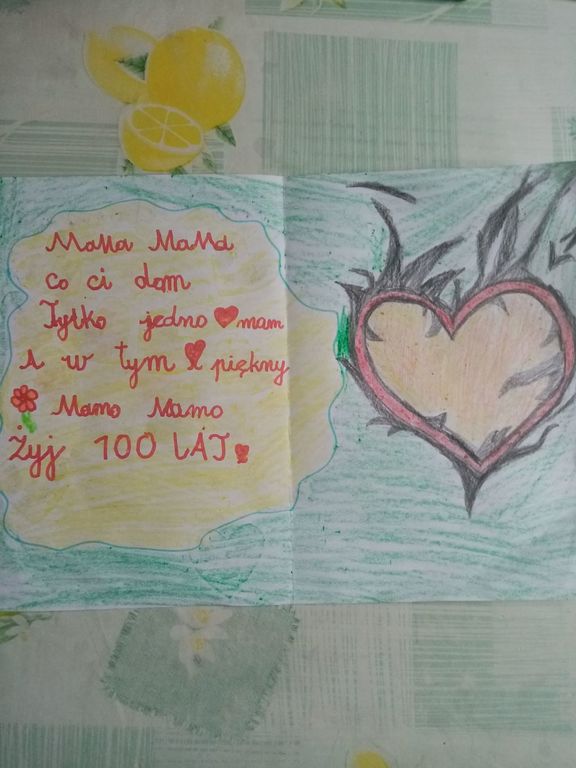 Mama Mama
co ci dam
Tylko jedno ❤ mam
A w tym ❤ piękny
Mamo Mamo
Żyj 100 LAT